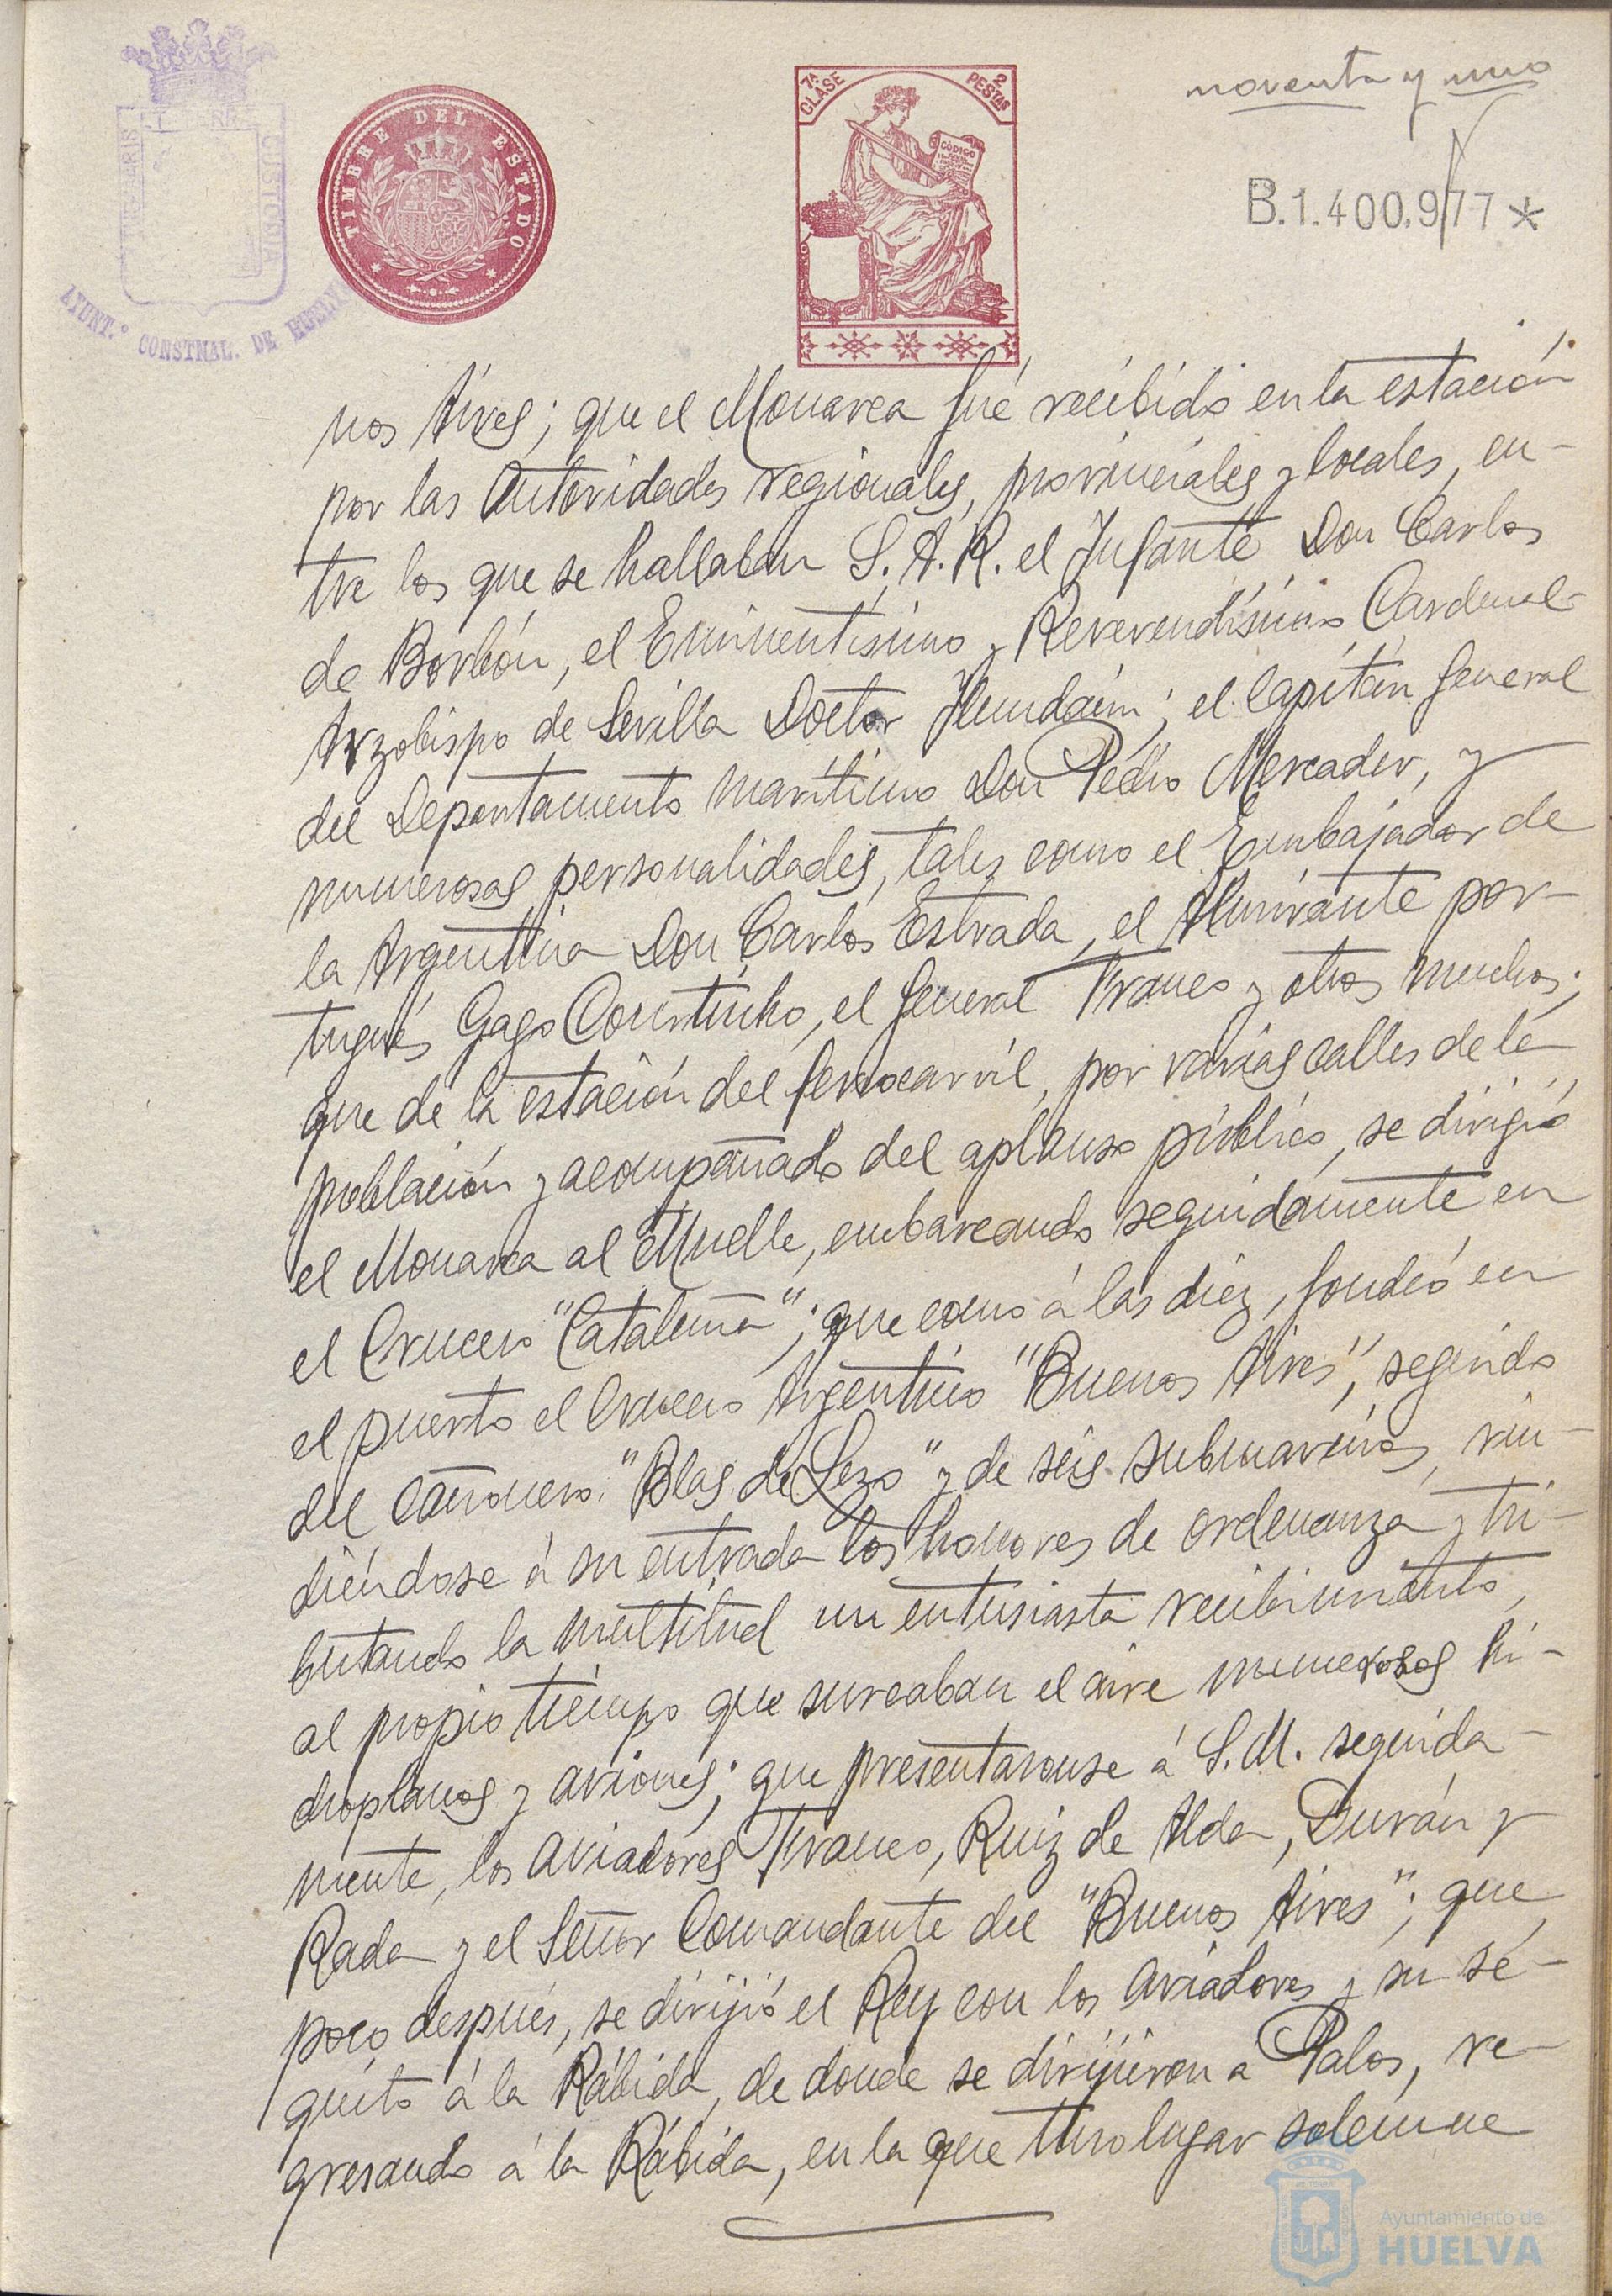 noventa y uno
7ª CLASE
2 PESTAS
CÓDIGO
TIMBRE DEL ESTADO
B.1.400.977 *
AYUNT.º CONSTNAL. DE HUELVA
nos Aires; que el Monarca fué recibido en la estación
por las Autoridades regionales, provinciales y locales, en-
tre los que se hallaban S. A. R. el Infante Don Carlos
de Borbón, el Eminentísimo y Reverendísimo Cardenal
Arzobispo de Sevilla Doctor Ilundáin; el Capitán General
del Departamento marítimo Don Pedro Mercader, y
numerosas personalidades, tales como el Embajador de
la Argentina Don Carlos Estrada, el Almirante por-
tugués Gago Countinho, el General Franco y otros muchos;
que de la estación del ferrocarril, por varias calles de la
población y acompañado del aplauso público, se dirigió
el Monarca al Muelle, embarcando seguidamente en
el Crucero "Cataluña"; que como á las diez, fondeó en
el puerto el Crucero Argentino "Buenos Aires", seguido
del Cañonero "Blas de Lezo" y de seis submarinos, rin-
diéndose á su entrada los honores de ordenanza y tri-
butando la multitud un entusiasta recibimiento,
al propio tiempo que surcaban el aire numerosos hi-
droplanos y aviones; que presentáronse á S. M. seguida-
mente, los aviadores Franco, Ruiz de Alda, Durán y
Rada y el Señor Comandante del "Buenos Aires"; que,
poco después, se dirijió el Rey con los aviadores y su sé-
quito á la Rábida, de donde se dirijieron a Palos, re-
gresando á la Rábida, en la que tuvo lugar solemne
Ayuntamiento de
HUELVA